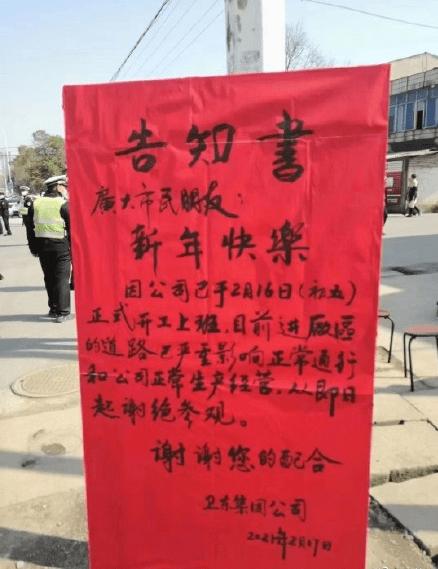 告知書
廣大市民朋友：
新年快樂
因公司已于2月16日(初五)
正式开工上班,目前进厰區
的道路已严重影响正常通行
和公司正常生产经营,从即日
起谢绝参观。
谢谢您的配合
卫东集团公司
2021年2月17日